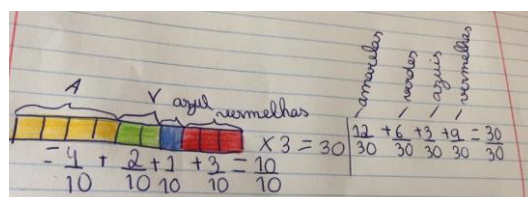 A V azul vermelhas
= 4/10 + 2/10 + 1/10 + 3/10 = 10/10
× 3 = 30
amarelas
verdes
azuis
vermelhas
12/30 + 6/30 + 3/30 + 9/30 = 30/30